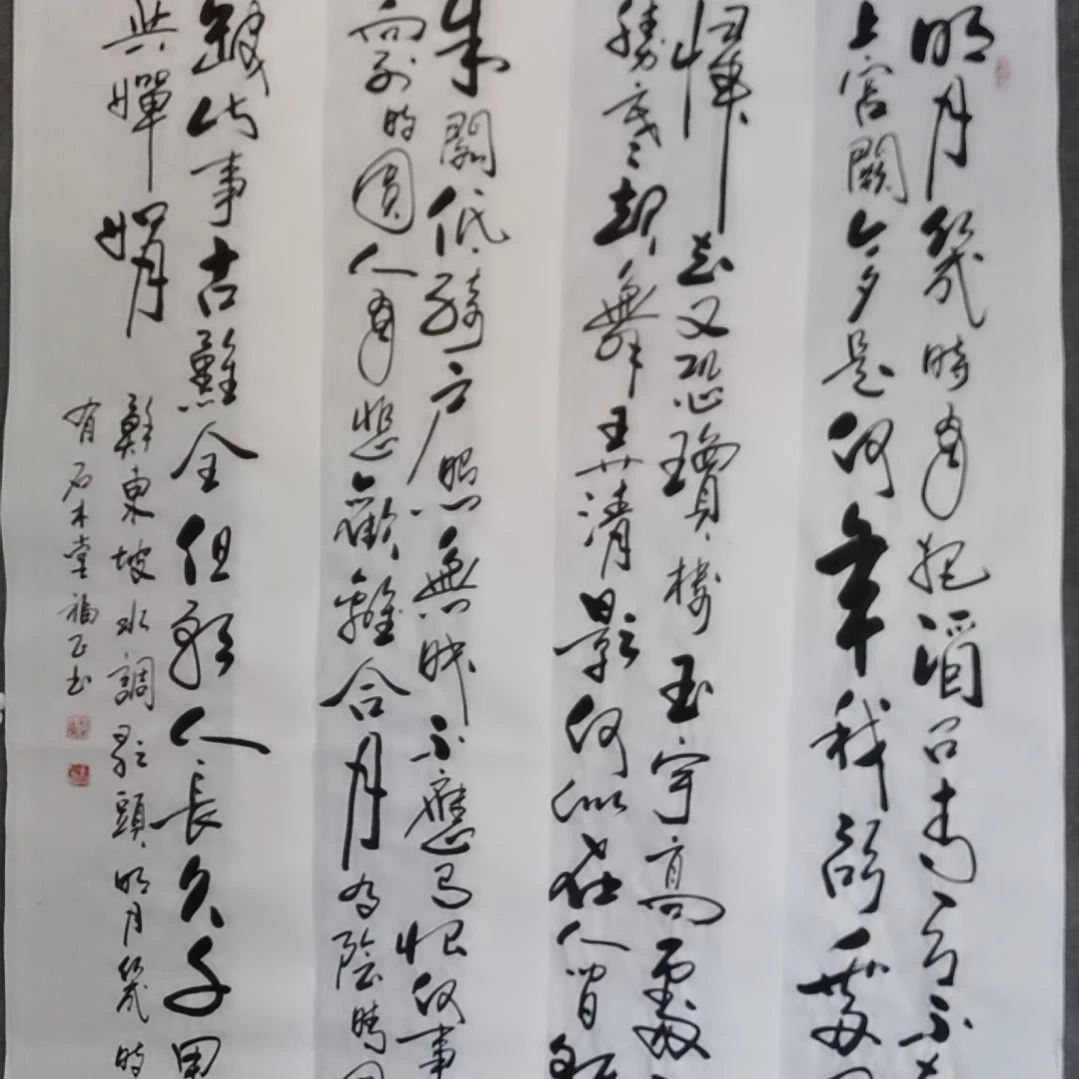 明月幾時有把酒问青天不
上宮闕今夕是何年我欲乘
歸去又恐瓊樓玉宇高處
勝寒起舞弄清影何似在人間
朱閣低綺戶照無眠不應有恨何事
向別時圓人有悲歡離合月有陰晴圓
缺此事古難全但願人長久千里
共嬋娟
蘇東坡水調歌頭明月幾時
有石木堂福正书